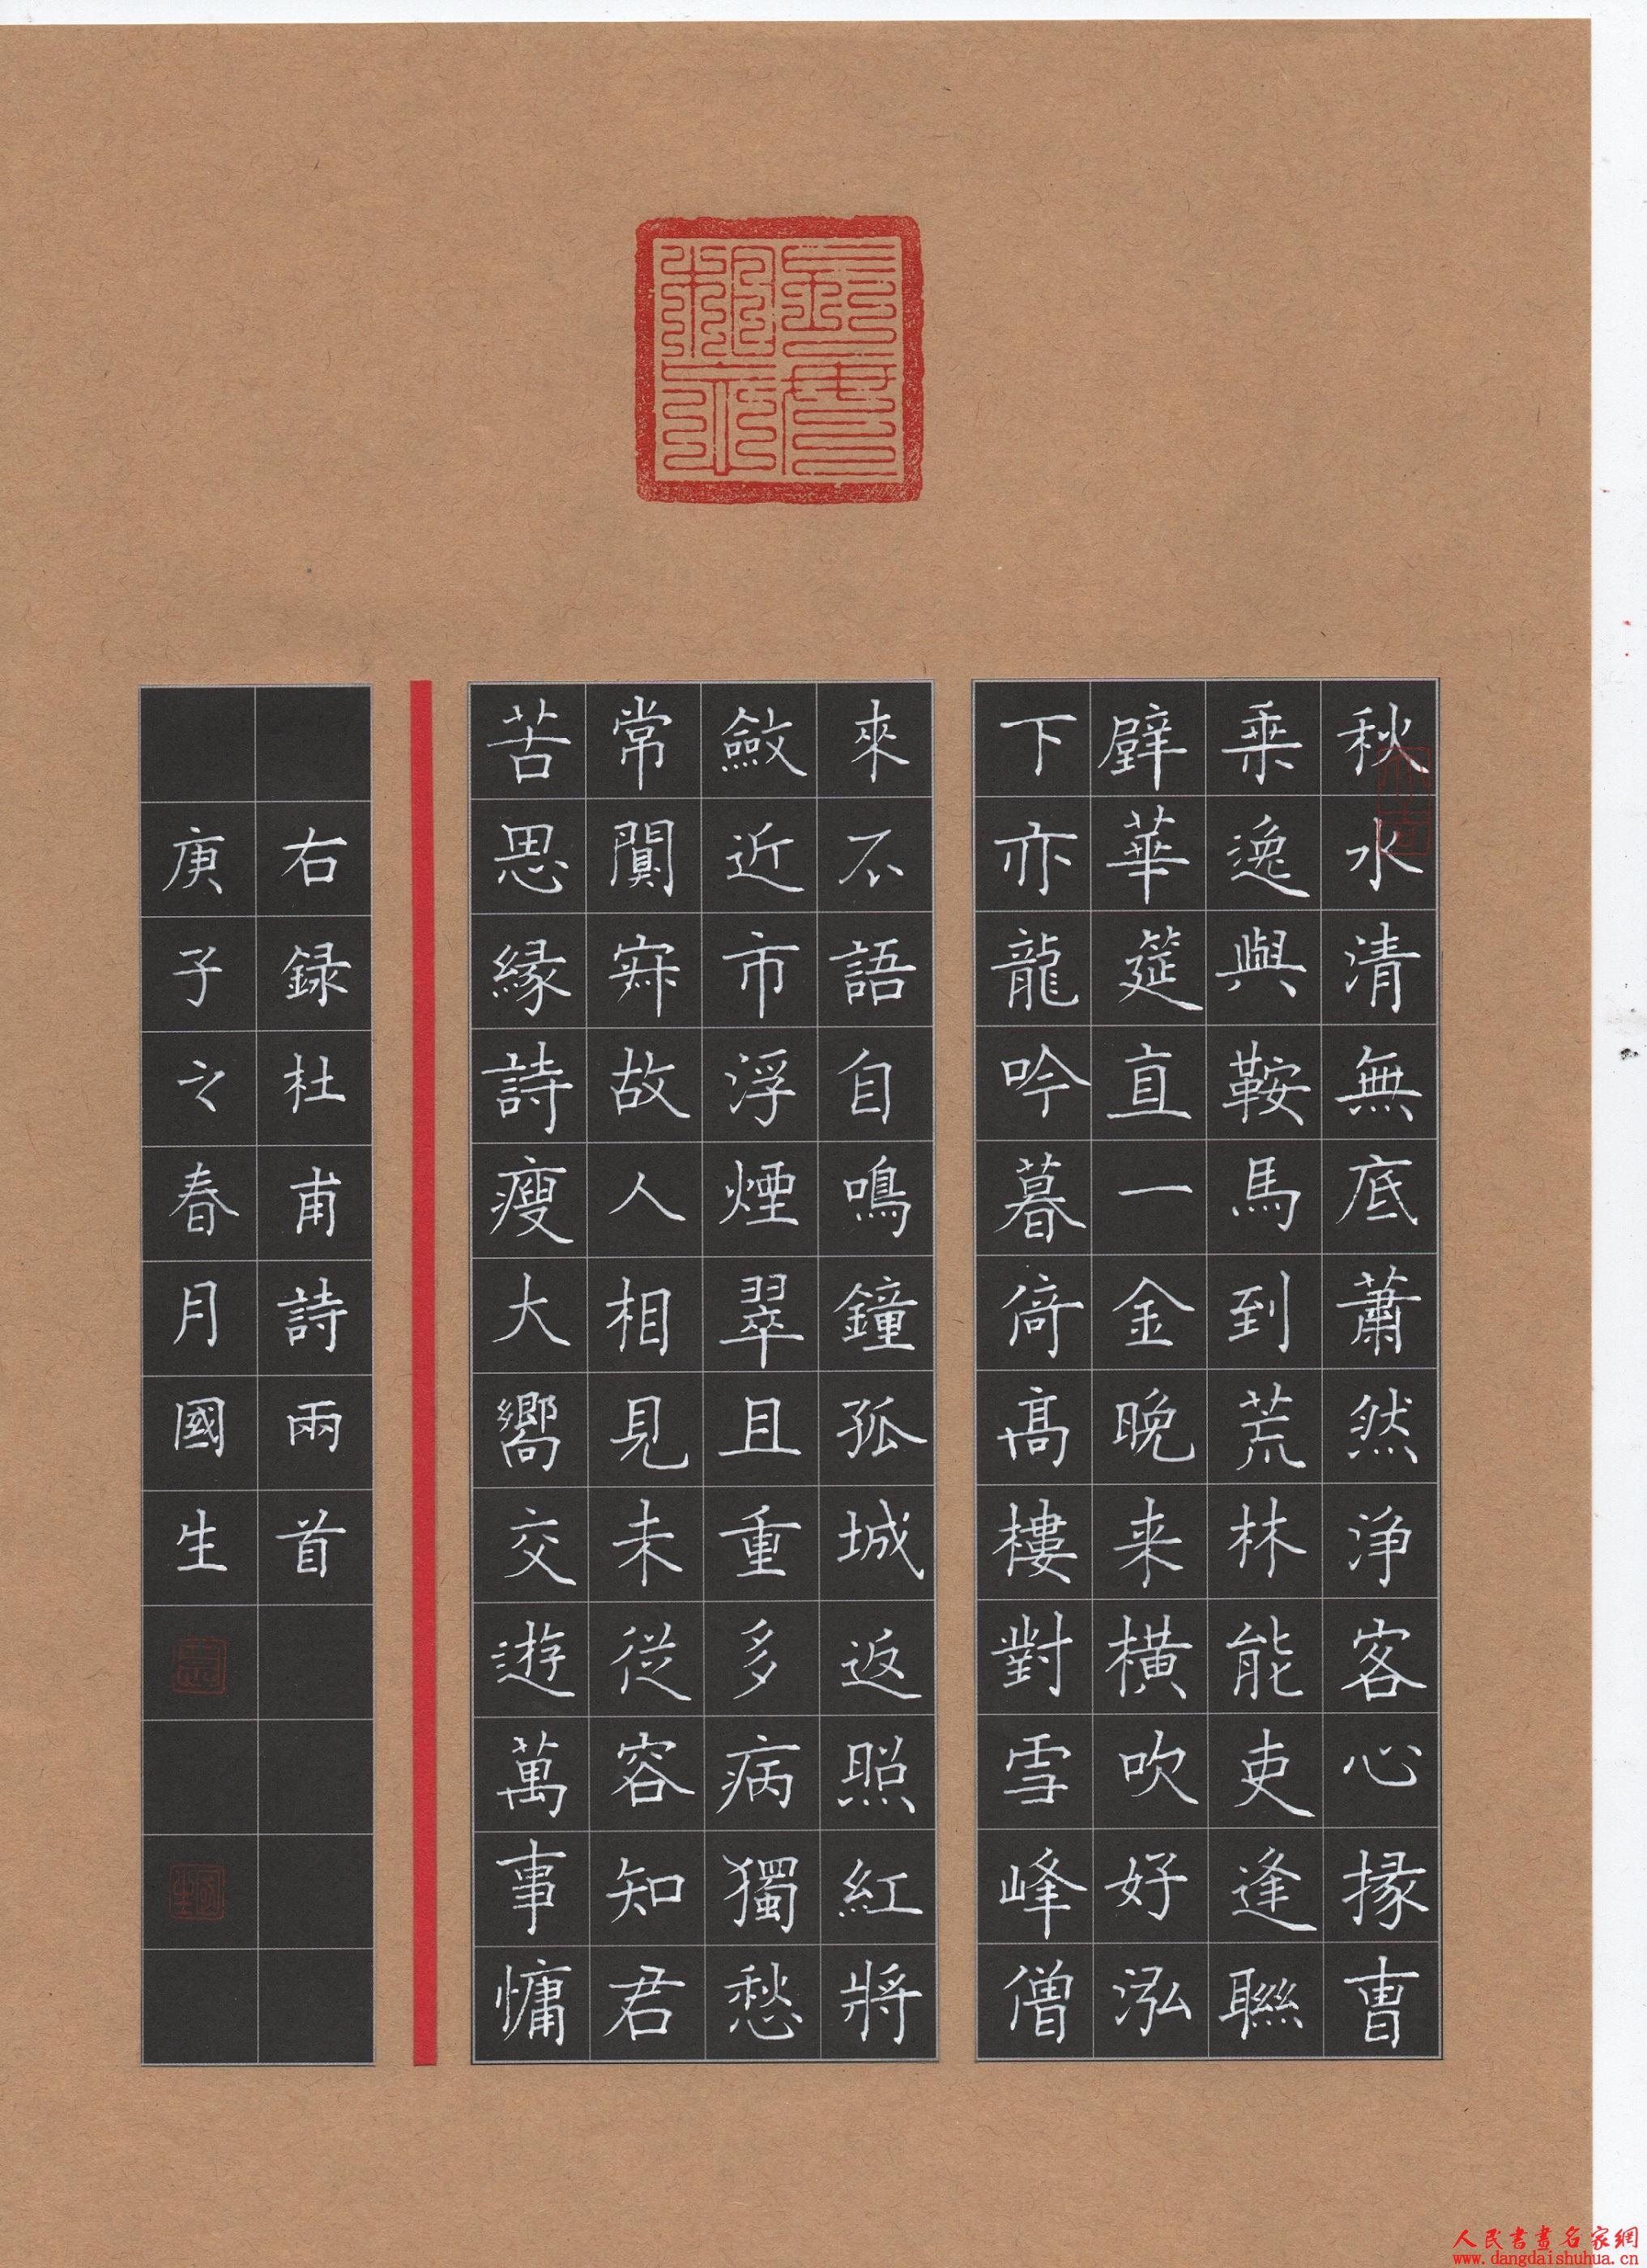 秋水清無底蕭然浄客心掾曺
乗逸與鞍馬到荒林能吏逢聯
璧華筵直一金晚来横吹好泓
下亦龍吟暮倚髙樓對雪峰僧
來不語自鳴鐘孤城返照紅將
斂近市浮煙翠且重多病獨愁
常闃寂故人相見未從容知君
苦思緣詩瘦大嚮交遊萬事慵
右録杜甫詩兩首
庚子之春月國生
人民書畫名家網
www.dangdaishuhua.cn